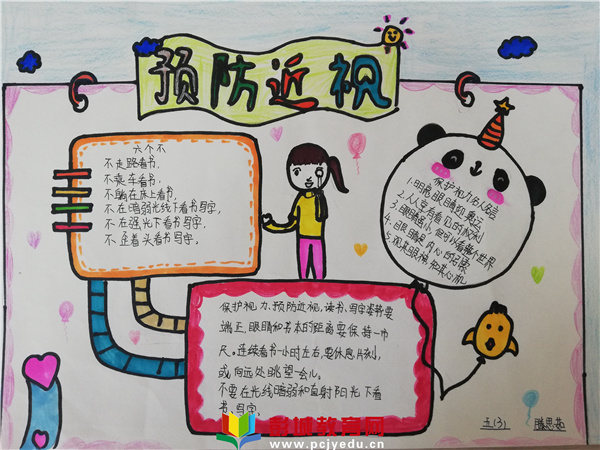 预防近视
六个不
不走路看书.
不乘车看书.
不躺在床上看书,
不在暗弱光线下看书写字,
不在强光下看书写字.
不歪着头看书写字,
保护视力名人名言
1.明亮眼睛如熏染
2.人人享有看见的权利
3.眼睛虽小,但可以看整个世界
4.眼睛是内心的
保护视力、预防近视,读书、写字姿势要
端正.眼睛和书本的距离要保持一市
尺。连续看书一小时左右,要休息片刻,
或向远处眺望一会儿。
不要在光线暗弱和直射阳光下看
书、写字。
五(3)
滕思茹
教育网
www.pcjyedu.cn